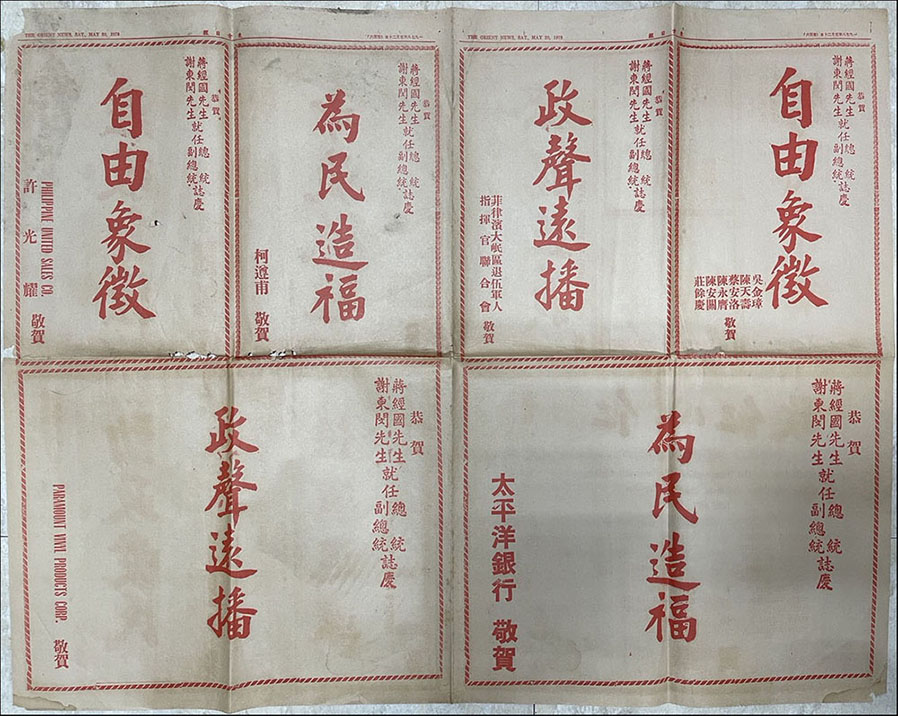 THE ORIENT NEWS, SAT., MAY 20, 1978
恭賀
蔣經國先生
謝東閔先生
就任
總統
副總統
誌慶
自由象徵
吳金璋
陳天壽
蔡安洛
陳永齊
陳安圖
莊餘慶
敬賀
恭賀
蔣經國先生
謝東閔先生
就任
總統
副總統
誌慶
政聲遠播
菲律濱大岷區退伍軍人
指揮官聯合會 敬賀
恭賀
蔣經國先生
謝東閔先生
就任
總統
副總統
誌慶
為民造福
太平洋銀行 敬賀
THE ORIENT NEWS, SAT., MAY 20, 1978
恭賀
蔣經國先生
謝東閔先生
就任
總統
副總統
誌慶
為民造福
柯遵甫 敬賀
恭賀
蔣經國先生
謝東閔先生
就任
總統
副總統
誌慶
自由象徵
PHILIPPINE UNITED SALES CO.
許光耀 敬賀
恭賀
蔣經國先生
謝東閔先生
就任
總統
副總統
誌慶
政聲遠播
PARAMOUNT VINYL PRODUCTS CORP. 敬賀